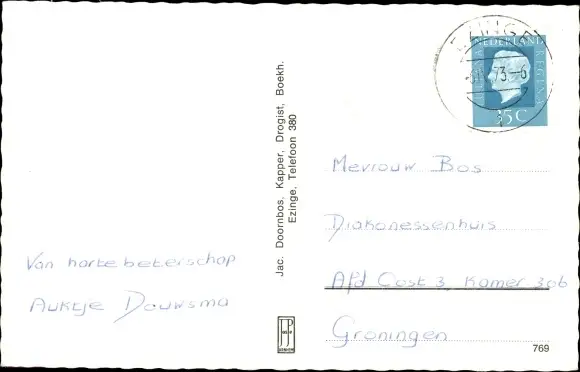 Van harte beterschap
Auktje Douwsma
Jac. Doornbos, Kapper, Drogist, Boekh.
Ezinge, Telefoon 380
EZINGE
73.-6
NEDERLAND
JULIANA REGINA
35C
Mevrouw Bos
Diakonessenhuis
Afd Oost 3 Kamer 306
Groningen
769